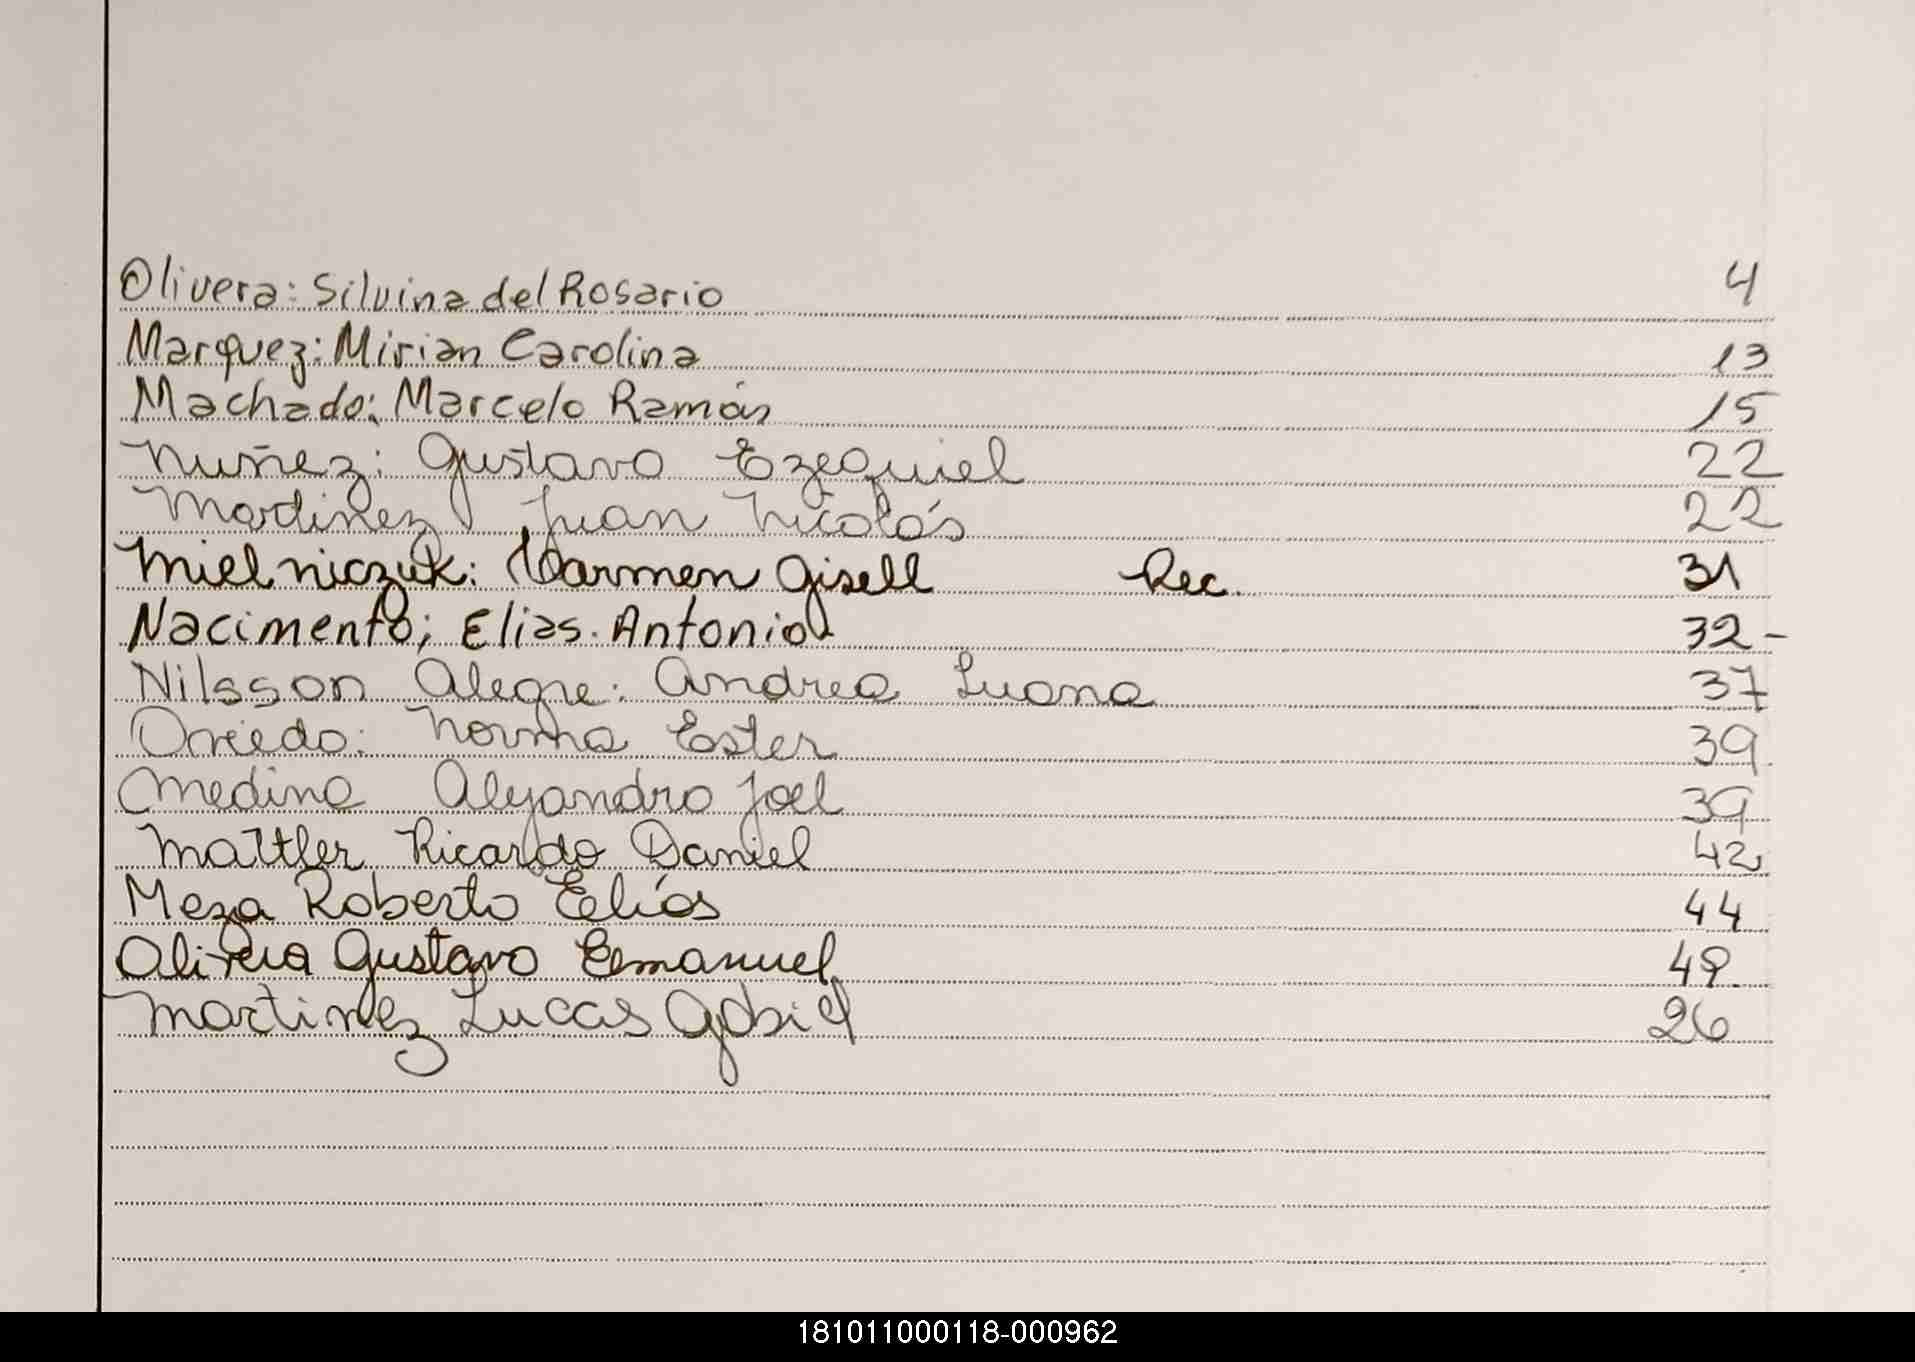 Olivera: Silvina del Rosario 4
Marquez: Mirian Carolina 13
Machado: Marcelo Ramón 15
Nuñez: Gustavo Ezequiel 22
Martinez Juan Nicolás 22
Mielniczuk: Carmen Gisell Rec. 31
Nacimento; Elias Antonio 32-
Nilsson Alegre: Andrea Luana 37
Oviedo: Norma Ester 39
Medina Alejandro Joel 39
Mattler Ricardo Daniel 42
Meza Roberto Elías 44
Olivera Gustavo Emanuel 49
Martinez Lucas Gabiel 26
181011000118-000962